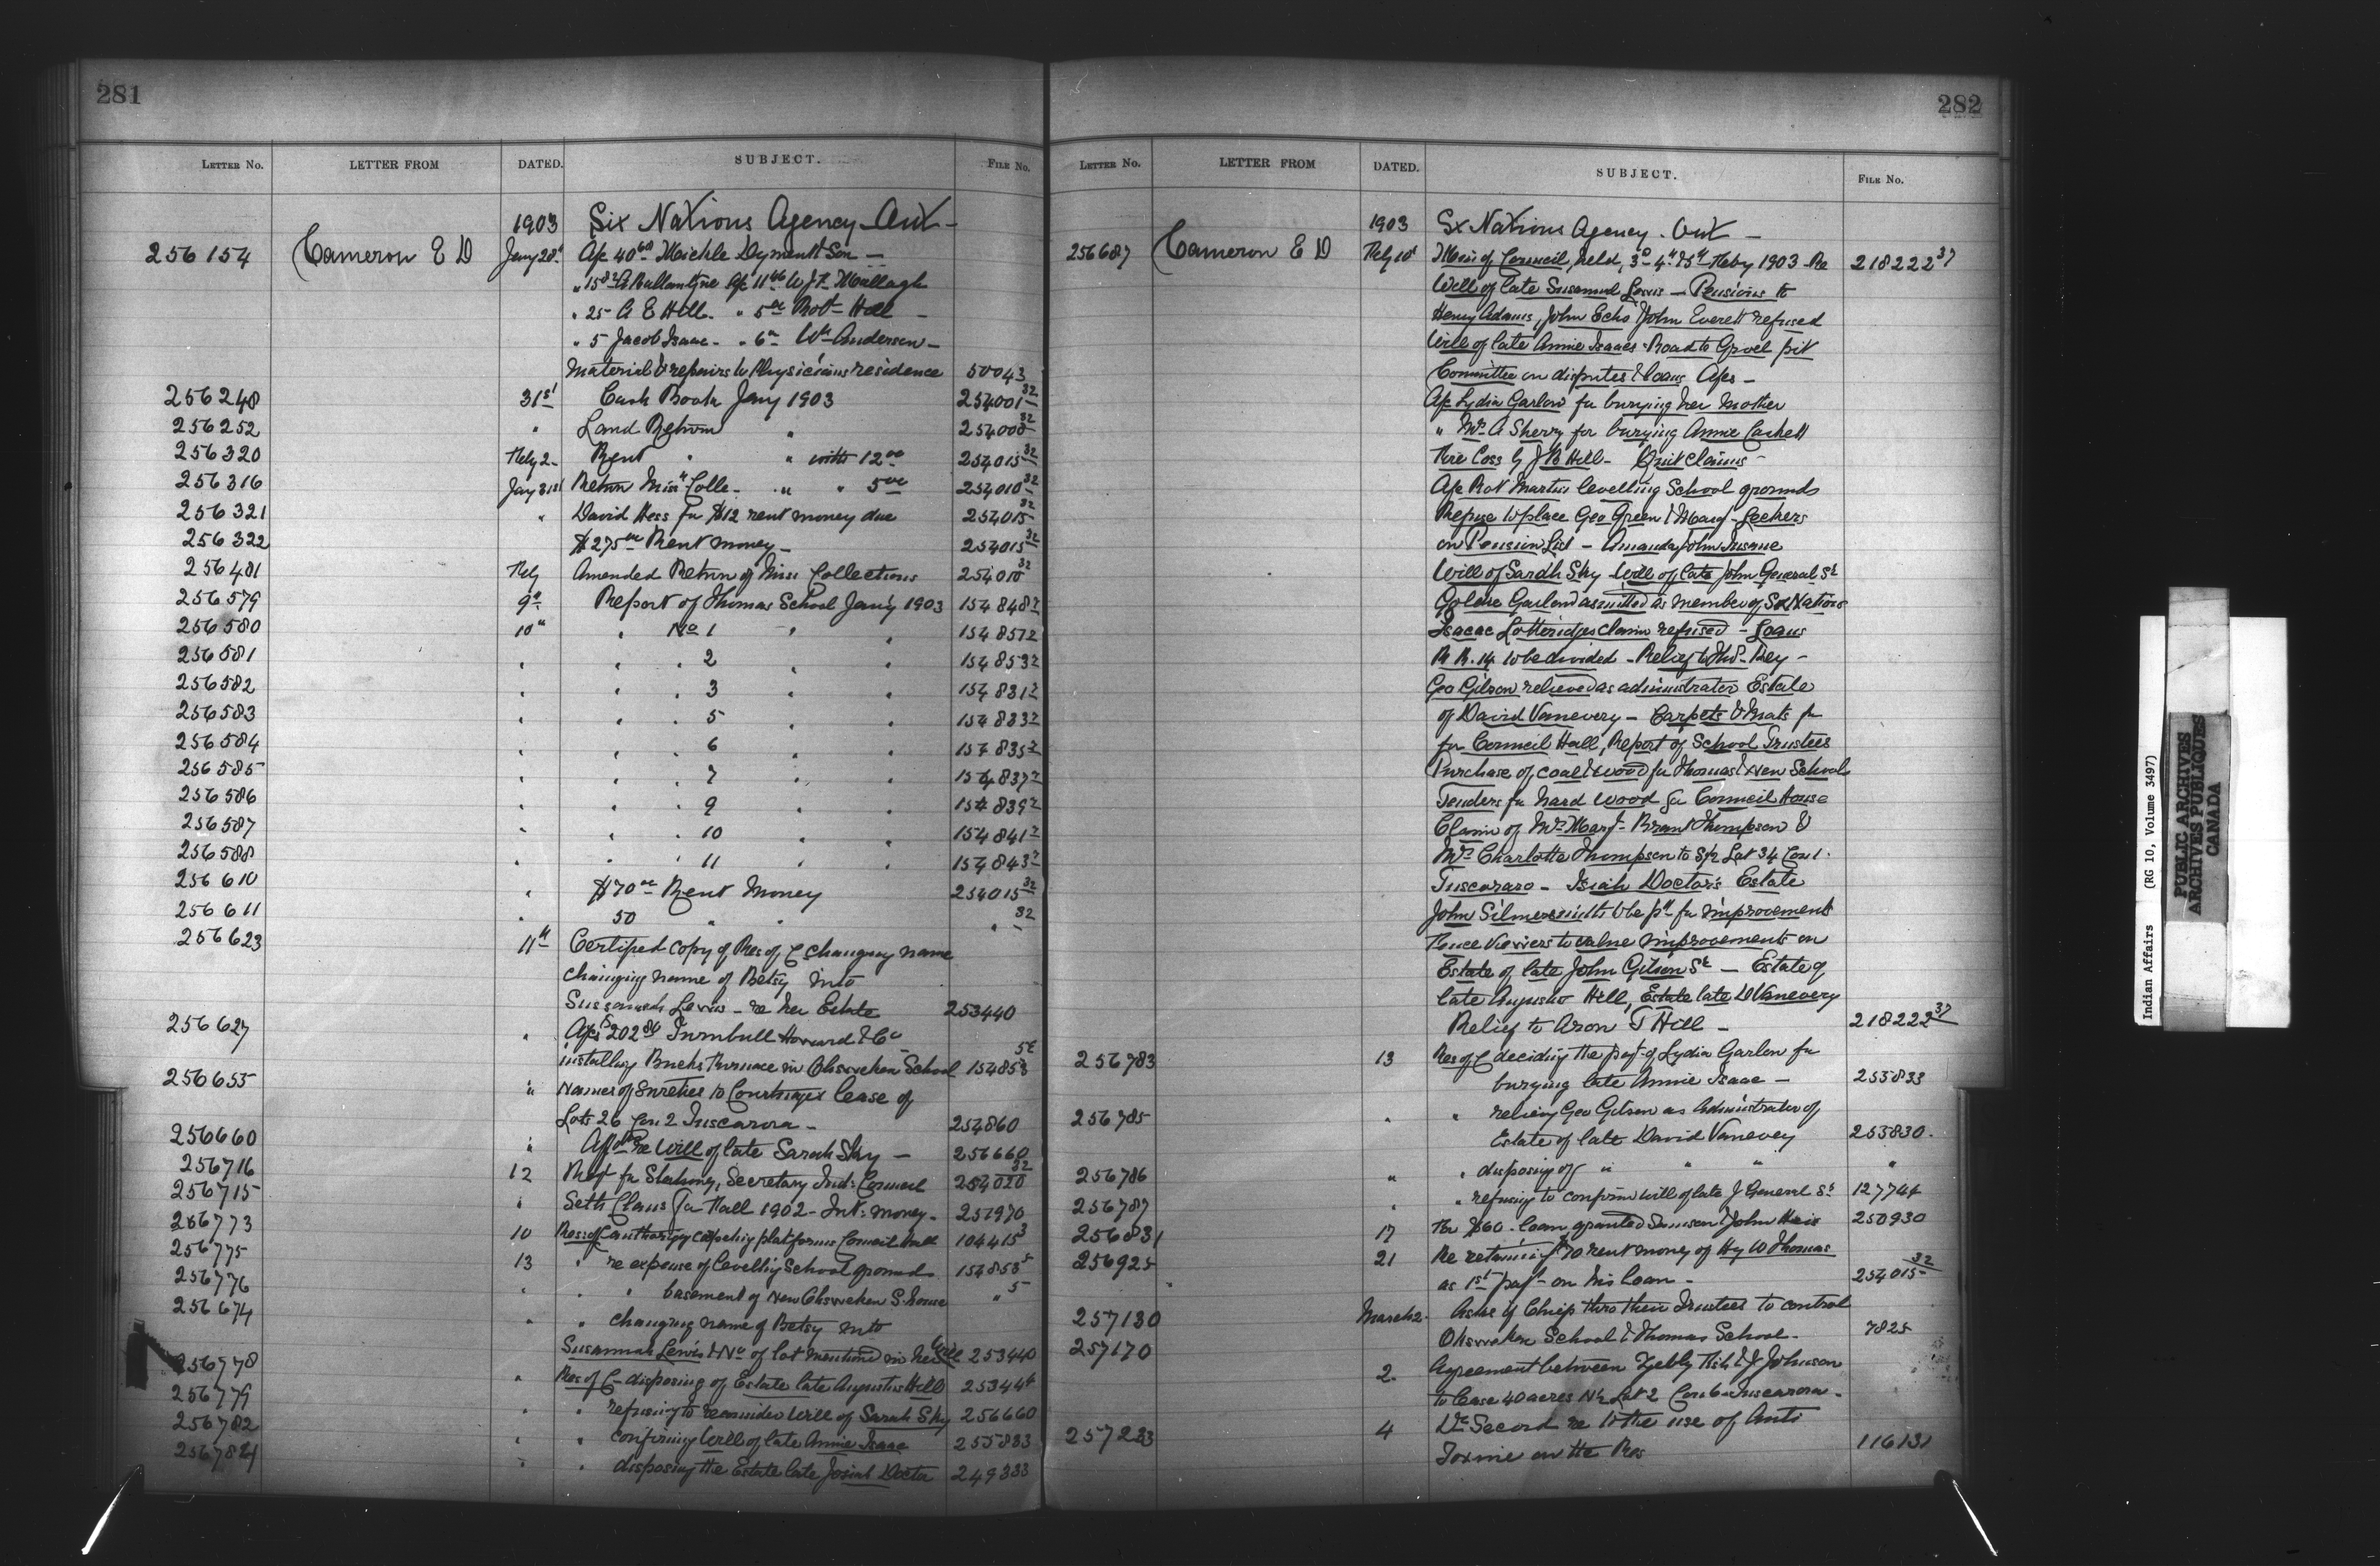 281
LETTER No. LETTER FROM DATED. SUBJECT. FILE No.
1903 Six Nations Agency Ont -
256154 Cameron E D Jany 28t Ac 40 60 Mickle Dyment & Son -
" 15 82 A Ballantyne Ac 11 46 W J
" 25 A E Hill. " 5 00 Robt Hill -
" 5 Jacob Isaac - " 6 00 Wm Anderson -
Material & repairs to Physicians residence 50043
256248 31st Cash Book Jany 1903 254001 32
256252 " Land Return " 254000 32
256320 Feby 2 - Rent " " with 12 00 254015 32
256316 Jay 31st Return Miss Colle - " " 5 00 254010 32
256321 " David Hess for $12 rent money due 254015 32
256322 $275 00 Rent money - 254015 32
256481 Feby Amended Return of Miss Collections 254010 32
256579 9th Report of Thomas School Jany 1903 154848 2
256580 10th " No 1 " " 154851 2
256581 " " " 2 " " 154853 2
256582 " " " 3 " " 154831 2
256583 " " " 5 " " 154833 2
256584 " " " 6 " " 154835 2
256585 " " " 7 " " 154837 2
256586 " " " 9 " " 154839 2
256587 " " " 10 " " 154841 2
256588 " " " 11 " " 154843 2
256610 " $70 00 Rent Money 254015 32
256611 " 50 " " " 32
256623 11th Certified copy of Res of C changing name
changing name of Betsy into
Sussannah Lewis - re her Estate 253440
256627 " Acs $202 84 Turnbull Howard & Co
installing Furnace in Ohsweken School 154858
256655 " Names of Sureties to lease of
Lots 26 Con 2 Tuscarora - 254860
256660 " Affdt re Will of late Sarah Sky - 256660
256716 12 Reqt for Stationy, Secretary Ind: Council 254020 32
256715 " Seth Claus for Fall 1902 - Int: money - 251970
256773 10 Res of C authorizing carpeting platforms Council Hall 104415 3
256775 13 " re expense of levelling School grounds 154855 5
256776 " " " basement of New Ohsweken S. house " 5
256674 " " changing name of Betsy into
Susannah Lewis & No of lot mentioned in her Will 253440
256778 " Res of C - disposing of Estate late Augustus Hill 253444
256779 " " refusing to reconsider Will of Sarah Sky 256660
256782 " " confirming Will of late Annie Isaac 255833
256784 " " disposing the Estate late Josiah Docta 249333
282
LETTER No. LETTER FROM DATED. SUBJECT. FILE No.
1903 Six Nations Agency. Ont -
256687 Cameron E D Feby 10t Min of Council, held, 3d 4th & 5th Feby 1903 - Re 218222 37
Will of late Susannah Lewis - Pensions to
Henry Adams, John Echo & John Everett refused
Will of late Annie Isaacs - Road to Gravel pit
Committee on disputes & loans Acs -
Ac Lydia Garlow for burying her Mother
" Mrs A Sherry for burying Annie
Fire Loss by J B Hill - Quit Claims -
Ac Robt Martin levelling School grounds
Refuse to place Geo Green & Margt
on Pension List - Amanda John Insane
Will of Sarah Sky Will of late John General Sr
Garlow admitted as member of Six Nations
Isaac Lotteridges claim refused - Loans
R R. 14 to be divided - Relief to
Geo Gilson relieved as administrator Estate
of David Vanevery - Carpets & Mats for
for Council Hall, Report of School Trustees
Purchase of coal & wood for Thomas & New School
Tenders for hard wood for Council House
Claim of Mrs Margt - Brant Thompson &
Mrs Charlotte Thompson to S½ Lot 34 Con 1.
Tuscararo - Isiah Doctor's Estate
John Silversmith to be pd for improvements
Fence Viewers to value improvements on
Estate of late John Gilson Sr - Estate of
late Augusta Hill, Estate late D Vanevery
Relief to Aron T Hill - 218222 37
256783 13 Res of C deciding the payt of Lydia Garlow for
burying late Annie Isaac - 255833
256785 " " reliev'g Geo Gilson as Administrator of
Estate of late David Vanevey 253830.
256786 " " disposing of " " " "
256787 " " refusing to confirm will of late J General Sr 127744
256831 17 For $60. loan granted Simeon & John 250930
256925 21 Re retaining $70 rent money of Hy W Thomas
as 1st payt - on his loan - 254015 32
257130 March 2 - Asks if Chiefs thro their Trustees to control
Ohsweken School & Thomas School. 7825
257170 2 Agreement between & J Johnson
to lease 40 acres N½ Lot 2 Con 6 Tuscarora -
257233 4 Dr Secord re to the use of Anti
Toxine on the Res 116131
Indian Affairs (RG 10, Volume 3497)
PUBLIC ARCHIVES
ARCHIVES PUBLIQUES
CANADA